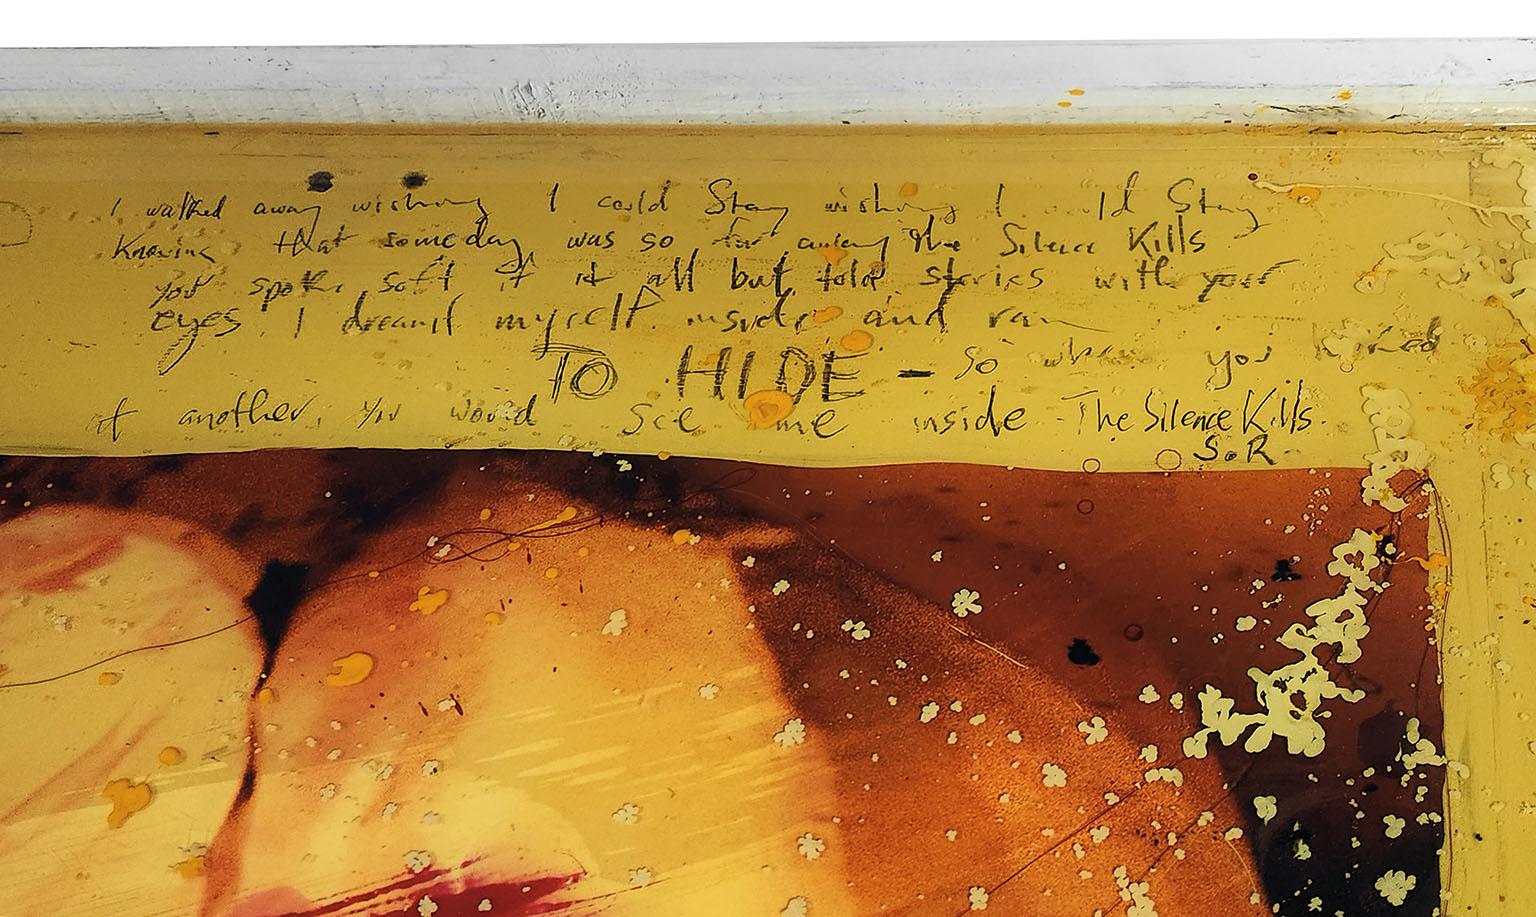 I walked away wishing I could Stay wishing I could Stay
Knowing that someday was so far away The Silence Kills
you spoke soft if it all but told stories with your
eyes. I dreamt myself inside and ran
TO HIDE - So when you looked
at another, you would see me inside - The Silence Kills.
S.R.